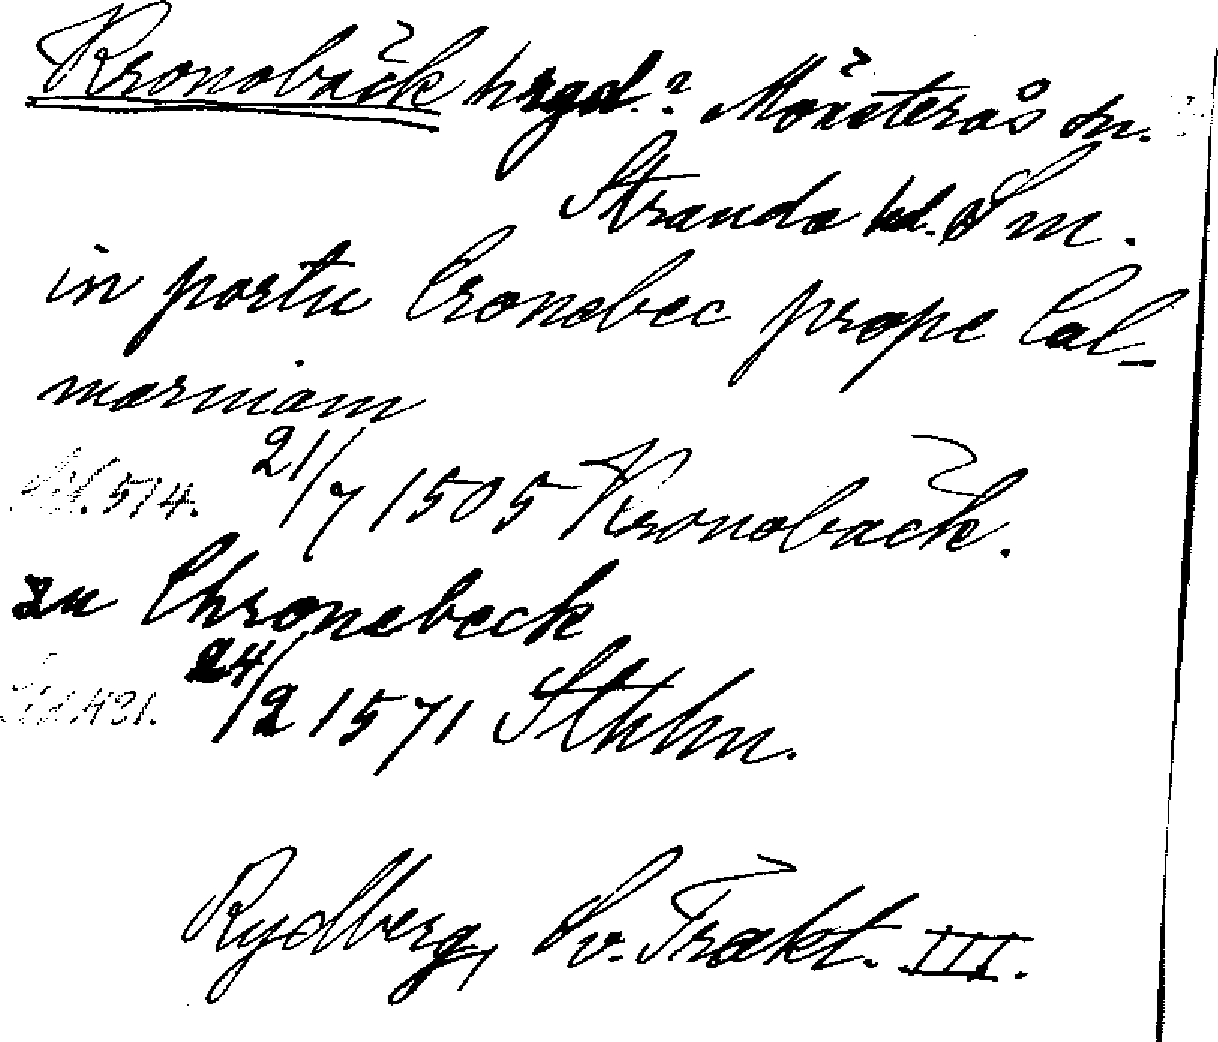 Kronobäck hrgd.? Mönsterås sn.
Stranda hd. Sm.
in portu Cronebec prope Cal-
marniam
Sid. 514. 21/7 1505 Kronobäck.
zu Chronebeck
Sid. 431. 24/2 1571 Sthlm.
Rydberg, Sv. Trakt. III.